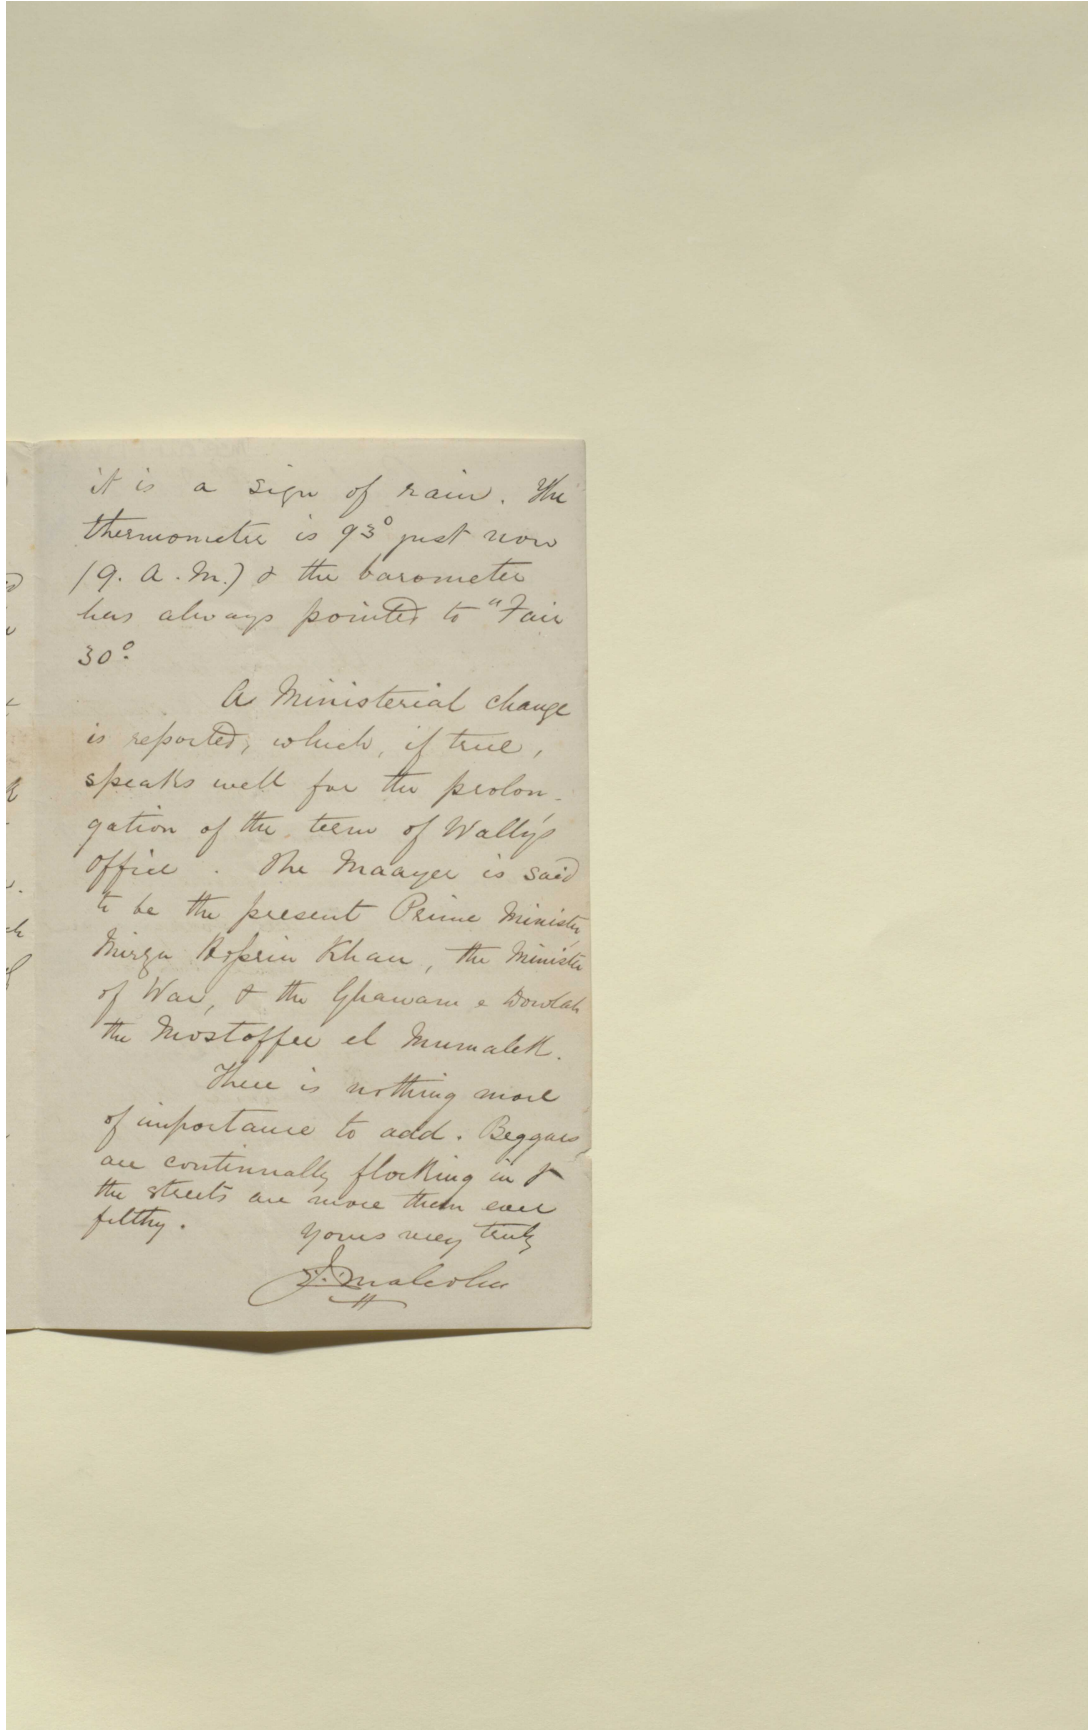 it is a sign of rain. The
thermometer is 93° just now
(9. A.M.) & the barometer
has always pointed to "Fair
30°.
A Ministerial change
is reported, which, if true,
speaks well for the prolon-
gation of the term of Wally's
Office. The Maayer is said
to be the present Prime Minister,
Mirza Hossein Khan, the Minister
of War, & the Ghawam e Dowlah
the Mostoffee el Mumalek.
There is nothing more
of importance to add. Beggars
are continually flocking in &
the streets are more than ever
filthy.
Yours very truly
J. Malcolm